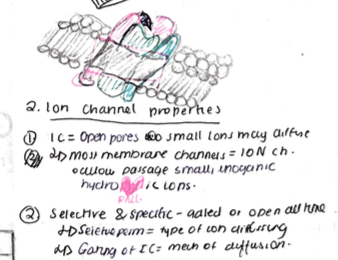 2. Ion channel properties
① IC = Open pores so small Ions may diffuse
↳ most membrane channels = ION Ch.
allow passage small, inorganic
hydrophilic ions.
② Selective & Specific - gated or open all time
↳ Selective perm = type of ion diffusing
↳ Gating of IC = mech of diffusion.